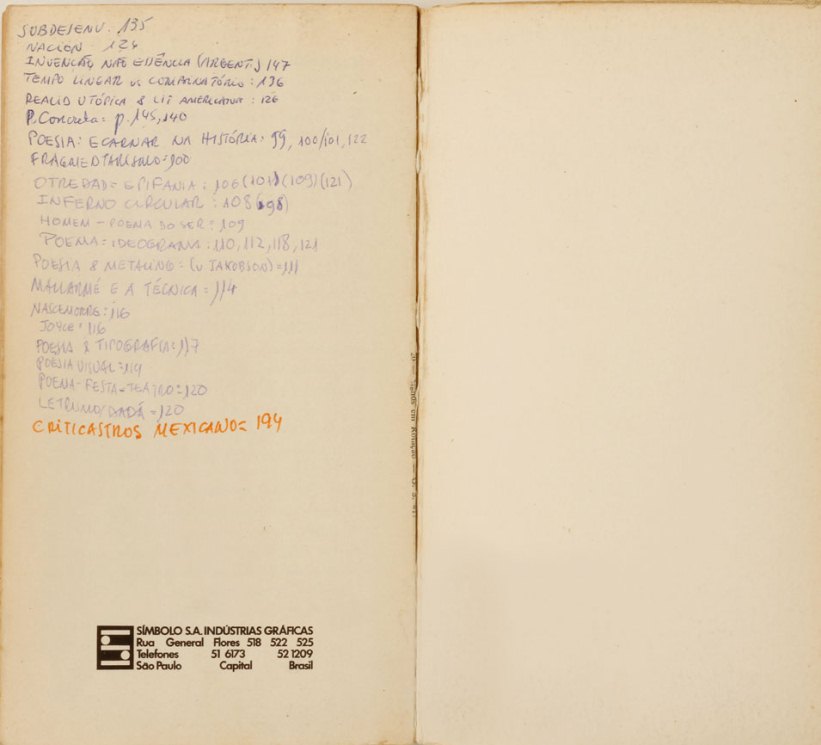 SUBDESENV. 135
NACION 124
INVENÇÃO NÃO ESSÊNCIA (ARGENT.) 147
TEMPO LINEAR vs COMBINATÓRIO: 136
REALID UTÓPICA & LIT AMERICANA: 126
P. Concreta: p. 145, 140
POESIA: ECARNAR NA HISTÓRIA: 99, 100/101, 122
FRAGMENTARISMO=100
OTREDAD= EPIFANIA: 106 (107) (109) (121)
INFERNO CIRCULAR: 108 (98)
HOMEM - POEMA DO SER: 109
POEMA=IDEOGRAMA: 110, 112, 118, 121
POESIA & METALING= (v JAKOBSON)=111
MALLARMÉ E A TÉCNICA: 114
116
JOYCE: 116
POESIA & TIPOGRAFIA: 117
POESIA VISUAL: 119
POEMA-FESTA-TEATRO: 120
LETRISMO/DADÁ =120
CRITICASTROS MEXICANO= 194
SÍMBOLO S.A. INDÚSTRIAS GRÁFICAS
Rua General Flores 518 522 525
Telefones 51 6173 52 1209
São Paulo Capital Brasil
Signos em Rotação